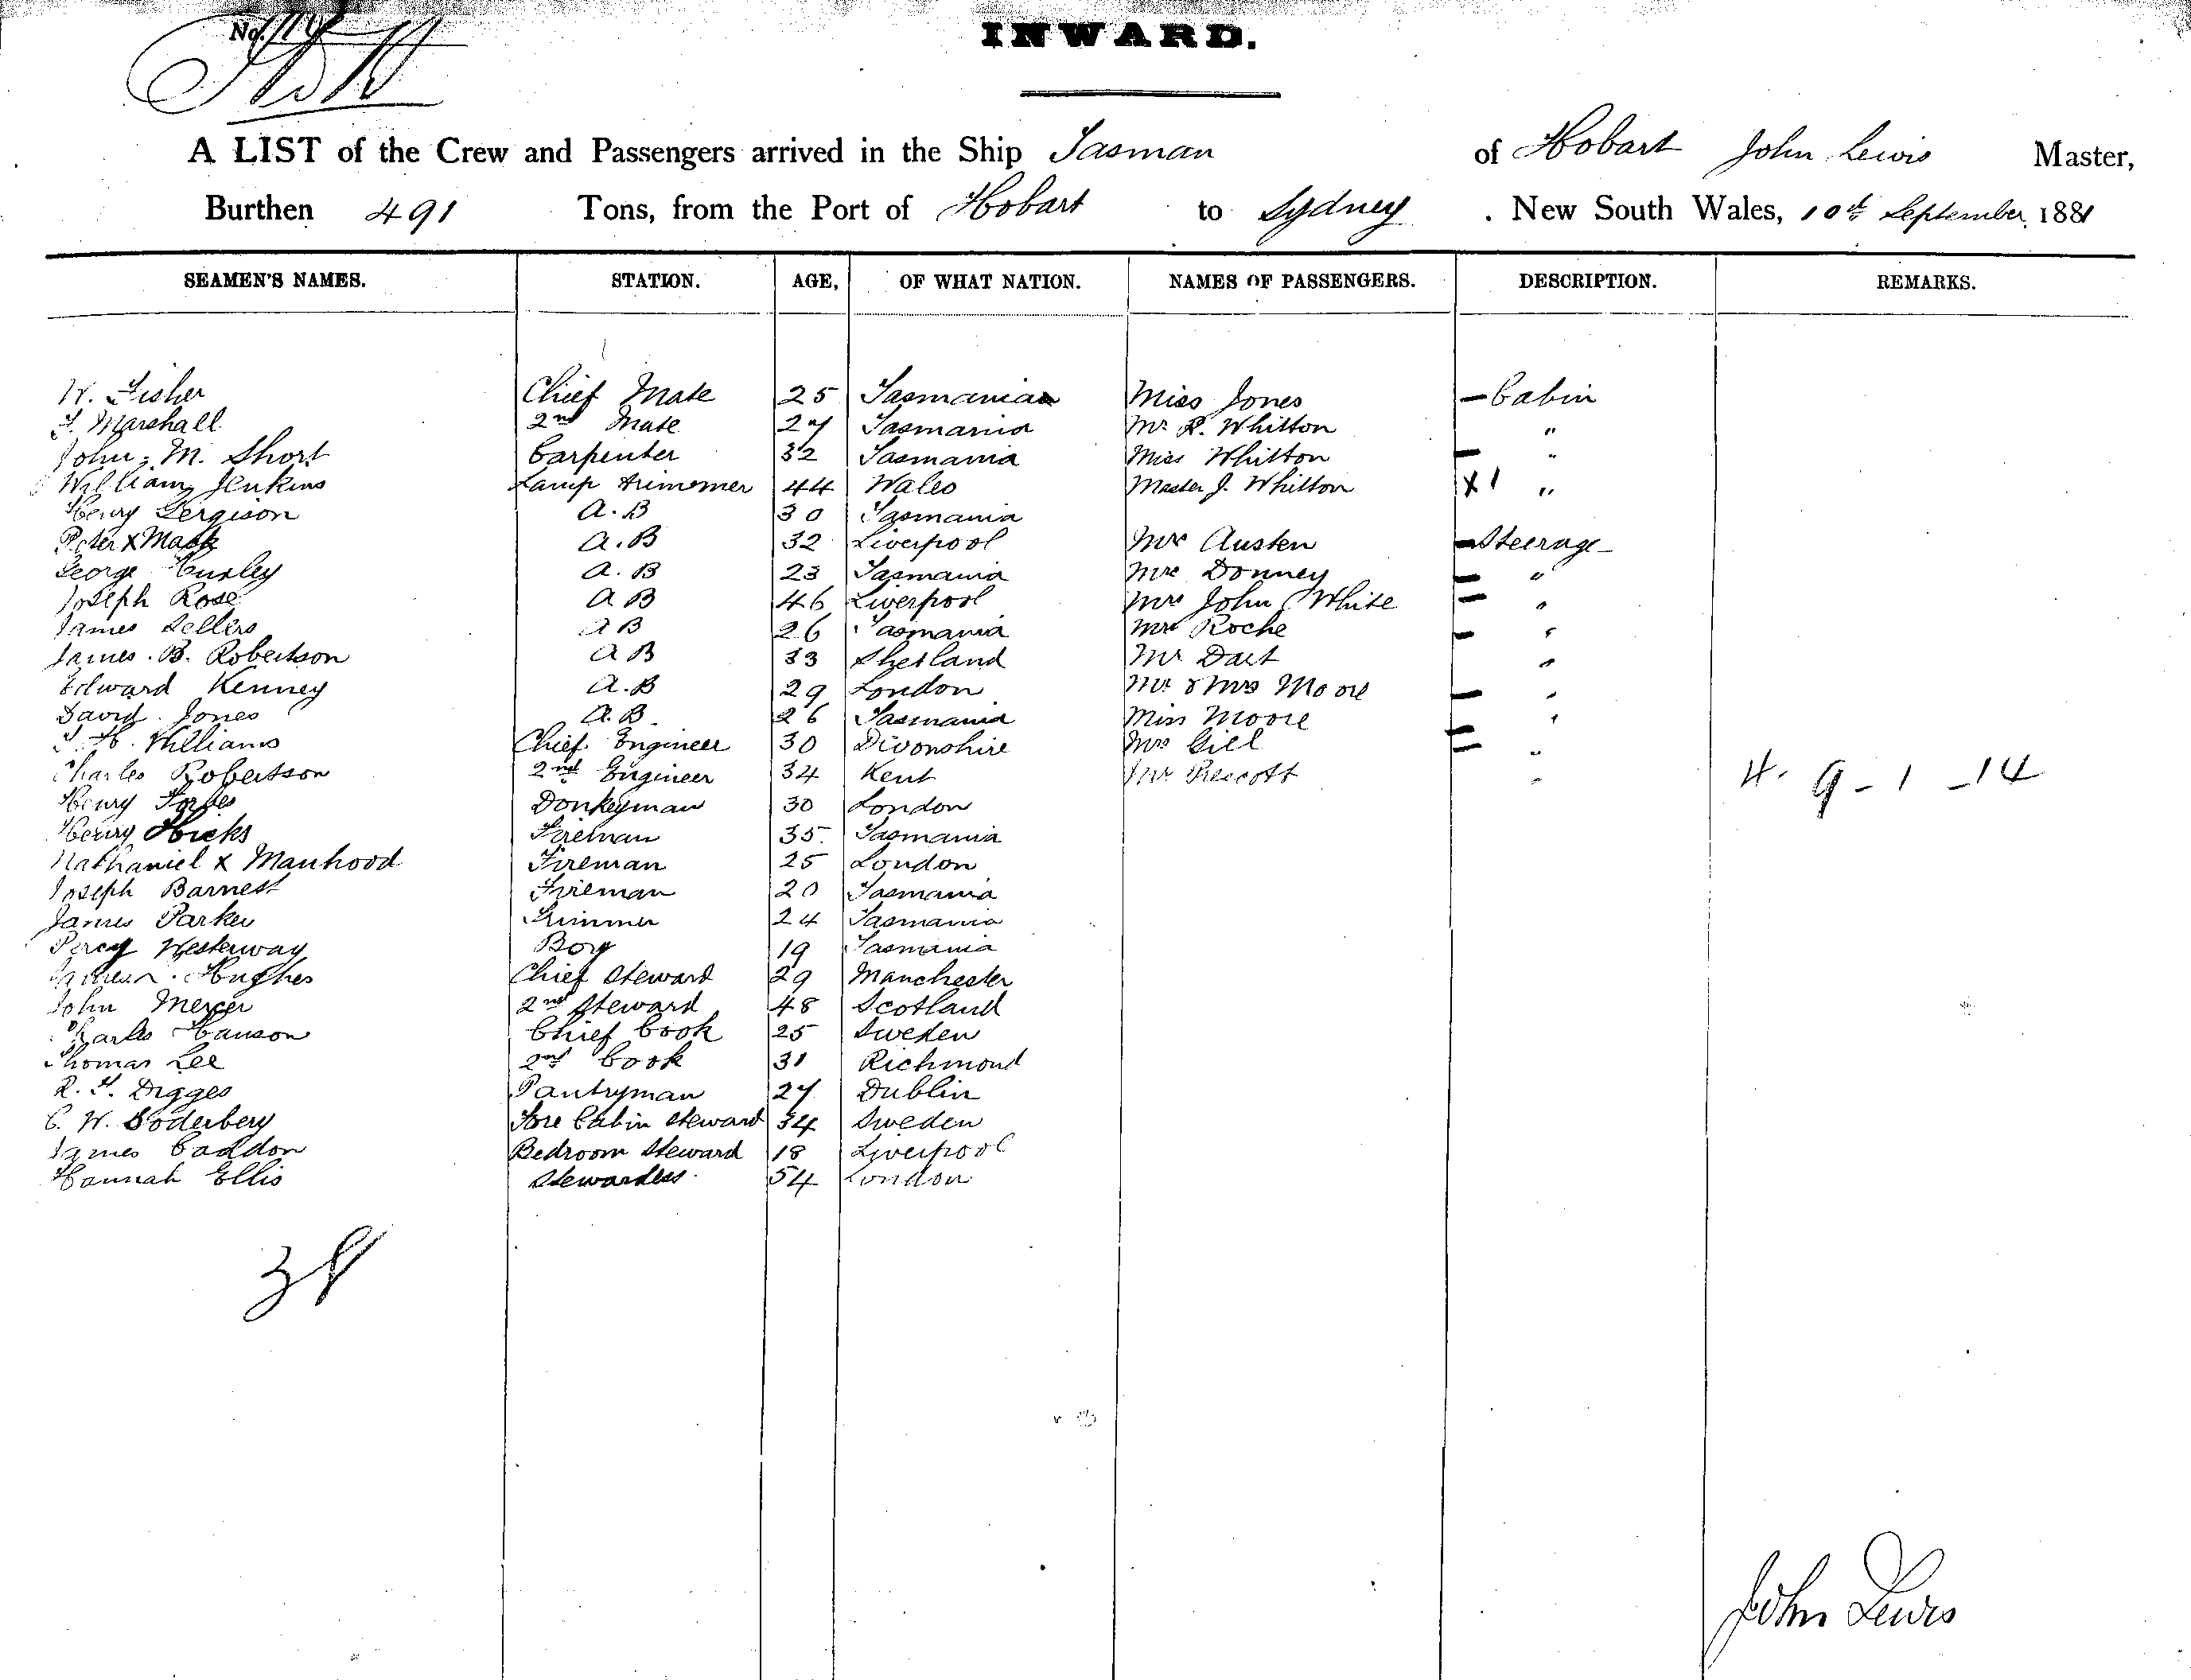 No.
INWARD.
A LIST of the Crew and Passengers arrived in the Ship Tasman of Hobart John Lewis Master,
Burthen 491 Tons, from the Port of Hobart to Sydney . New South Wales, 10th September 1881
SEAMEN'S NAMES. STATION. AGE, OF WHAT NATION. NAMES OF PASSENGERS. DESCRIPTION. REMARKS.
W. Fisher Chief Mate 25 Tasmania Miss Jones — Cabin
Marshall 2nd Mate 27 Tasmania Mr R. Whitton "
John M. Short Carpenter 32 Tasmania Miss Whitton — "
William Jenkins Lamp trimmer 44 Wales Master J. Whitton X 1 "
Henry Ferguson A.B 30 Tasmania
Peter X Mack A.B 32 Liverpool Mrs Austen — Steerage
George A.B 23 Tasmania Mrs Donney — "
Joseph Rose A B 46 Liverpool Mrs John White — "
James Sellers A B 26 Tasmania Mrs Roche — "
James. B. Robertson A B 33 Shetland Mr Dart "
Edward Kenney A.B 29 London Mr & Mrs Moore — "
David Jones A.B. 26 Tasmania Miss Moore — "
H. Williams Chief Engineer 30 Divonshire Mrs Gill — "
Charles Robertson 2nd Engineer 34 Kent Mr Prescott " 4. 9 - 1 - 14
Henry Forbes Donkeyman 30 London
Henry Hicks Fireman 35. Tasmania
Nathaniel X Manhood Fireman 25 London
Joseph Barnett Fireman 20 Tasmania
James Parker Trimmer 24 Tasmania
Percy Westerway Boy 19 Tasmania
Hughes Chief Steward 29 Manchester
John Mercer 2nd Steward 48 Scotland
Charles Hanson Chief Cook 25 Sweden
Thomas Lee 2nd Cook 31 Richmond
R. T. Digges Pantryman 27 Dublin
C. W. Soderberg Fore Cabin Steward 34 Sweden
James Caddon Bedroom Steward 18 Liverpool
Hannah Ellis Stewardess 54 London
John Lewis